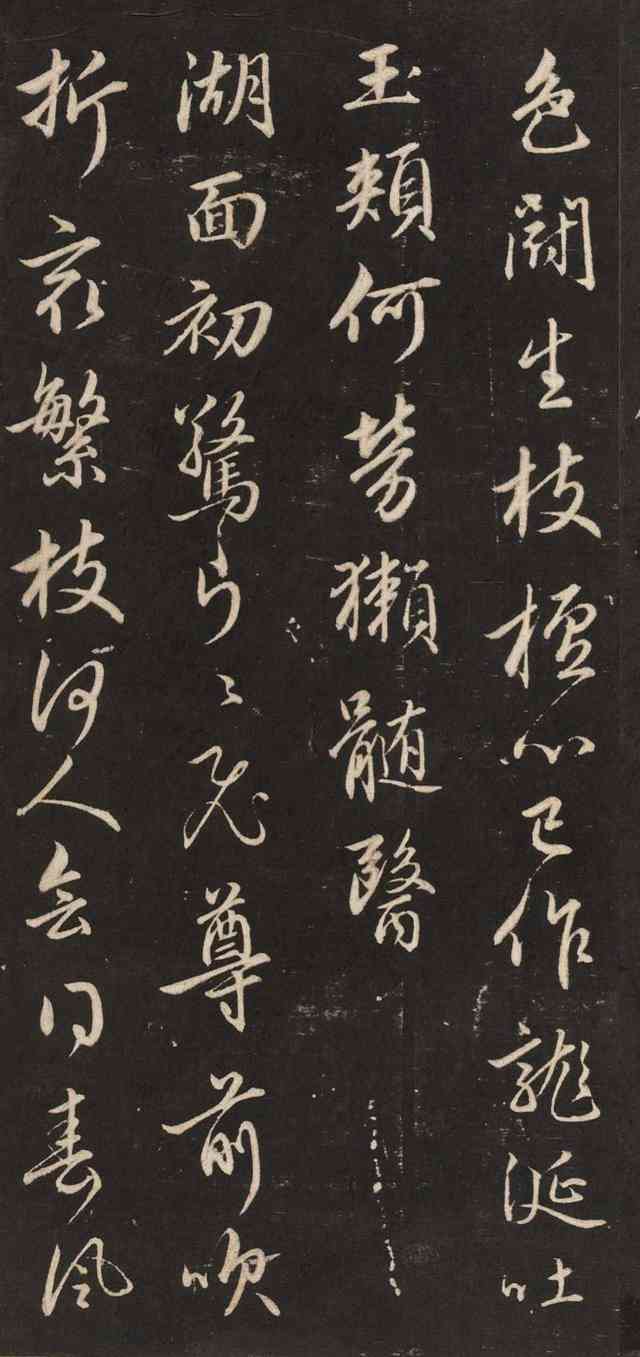 色鬪生枝檀心已作龍涎吐
玉頰何勞獺髓醫
湖面初驚片〻飛尊前吹
折最繁枝何人会同春風